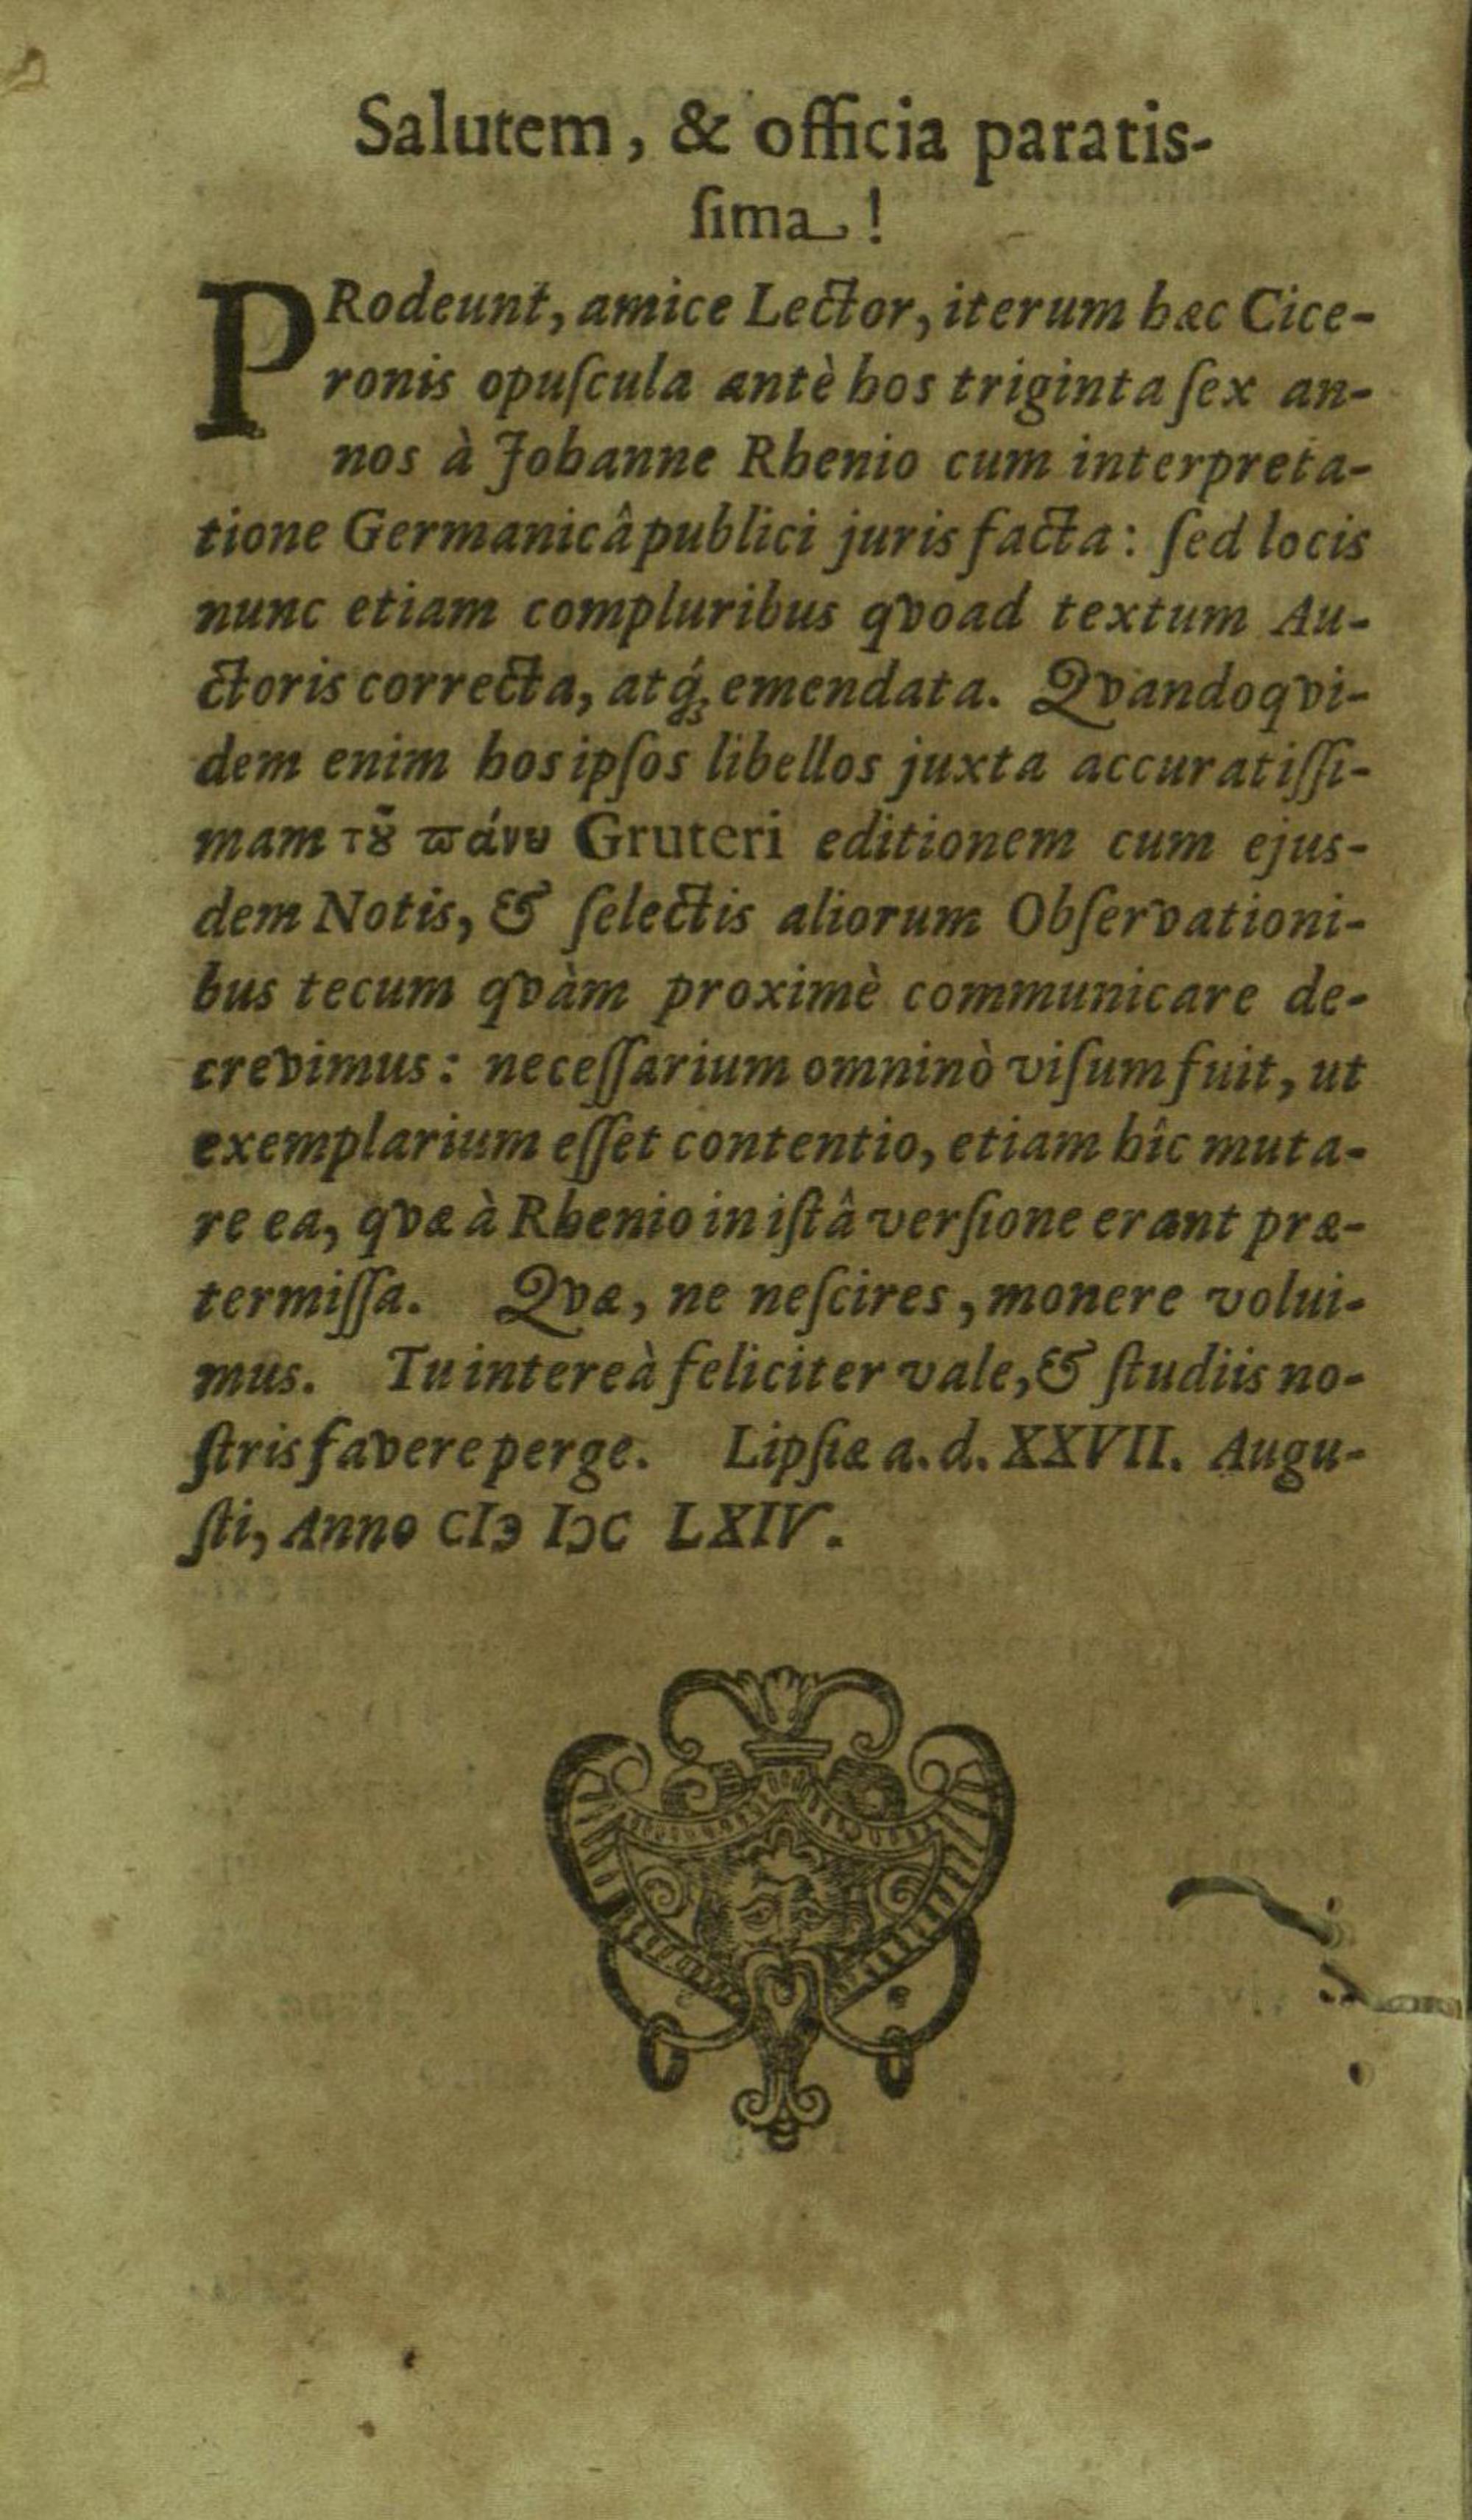 Salutem, & officia paratis-
ſima!
PRodeunt, amice Lector, iterum hæc Cice-
ronis opuſcula antè hos triginta ſex an-
nos à Johanne Rhenio cum interpreta-
tione Germanicâ publici juris facta: ſed locis
nunc etiam compluribus qvoad textum Au-
ctoris correcta, atq́; emendata. Qvandoqvi-
dem enim hos ipſos libellos juxta accuratiſſi-
mam τȣ͂ ϖάνȣ Gruteri editionem cum ejus-
dem Notis, & ſelectis aliorum Obſervationi-
bus tecum qvàm proximè communicare de-
crevimus: neceſſarium omninò viſum fuit, ut
exemplarium eſſet contentio, etiam hîc muta-
re ea, qvæ à Rhenio in iſtâ verſione erant præ-
termiſſa. Qvæ, ne neſcires, monere volui-
mus. Tu intereà feliciter vale, & ſtudiis no-
ſtris favere perge. Lipſiæ a. d. XXVII. Augu-
ſti, Anno CIↄ IↄC LXIV.